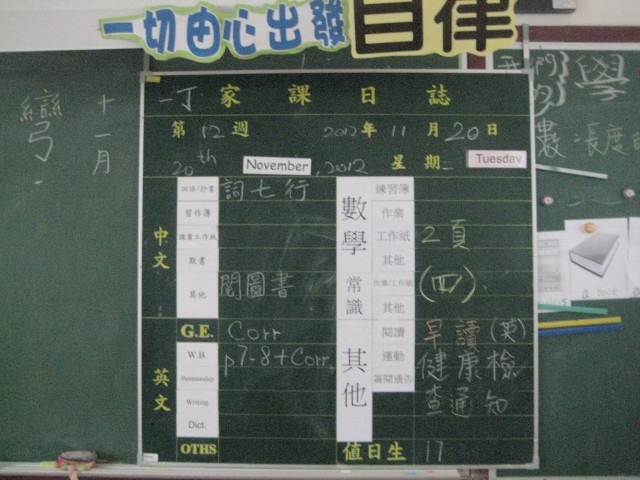 一切由心出發
自律
一丁 家課日誌
第 12 週 2012 年 11 月 20 日
20th November, 2012 星期二 Tuesday
中文
詞七行
習作簿
默書
其他
閱圖書
G.E. Corr
英文
W.B. p7-8+Corr.
Penmanship
Writing
Dict.
OTHS
數學
練習簿
作業
工作紙 2頁
其他
常識
作業/工作紙 (四)
其他
其他
閱讀 早讀(英)
運動 健康檢
查通知
值日生 17
彎
弓
十一月
我們
的
學
數
長度
a book